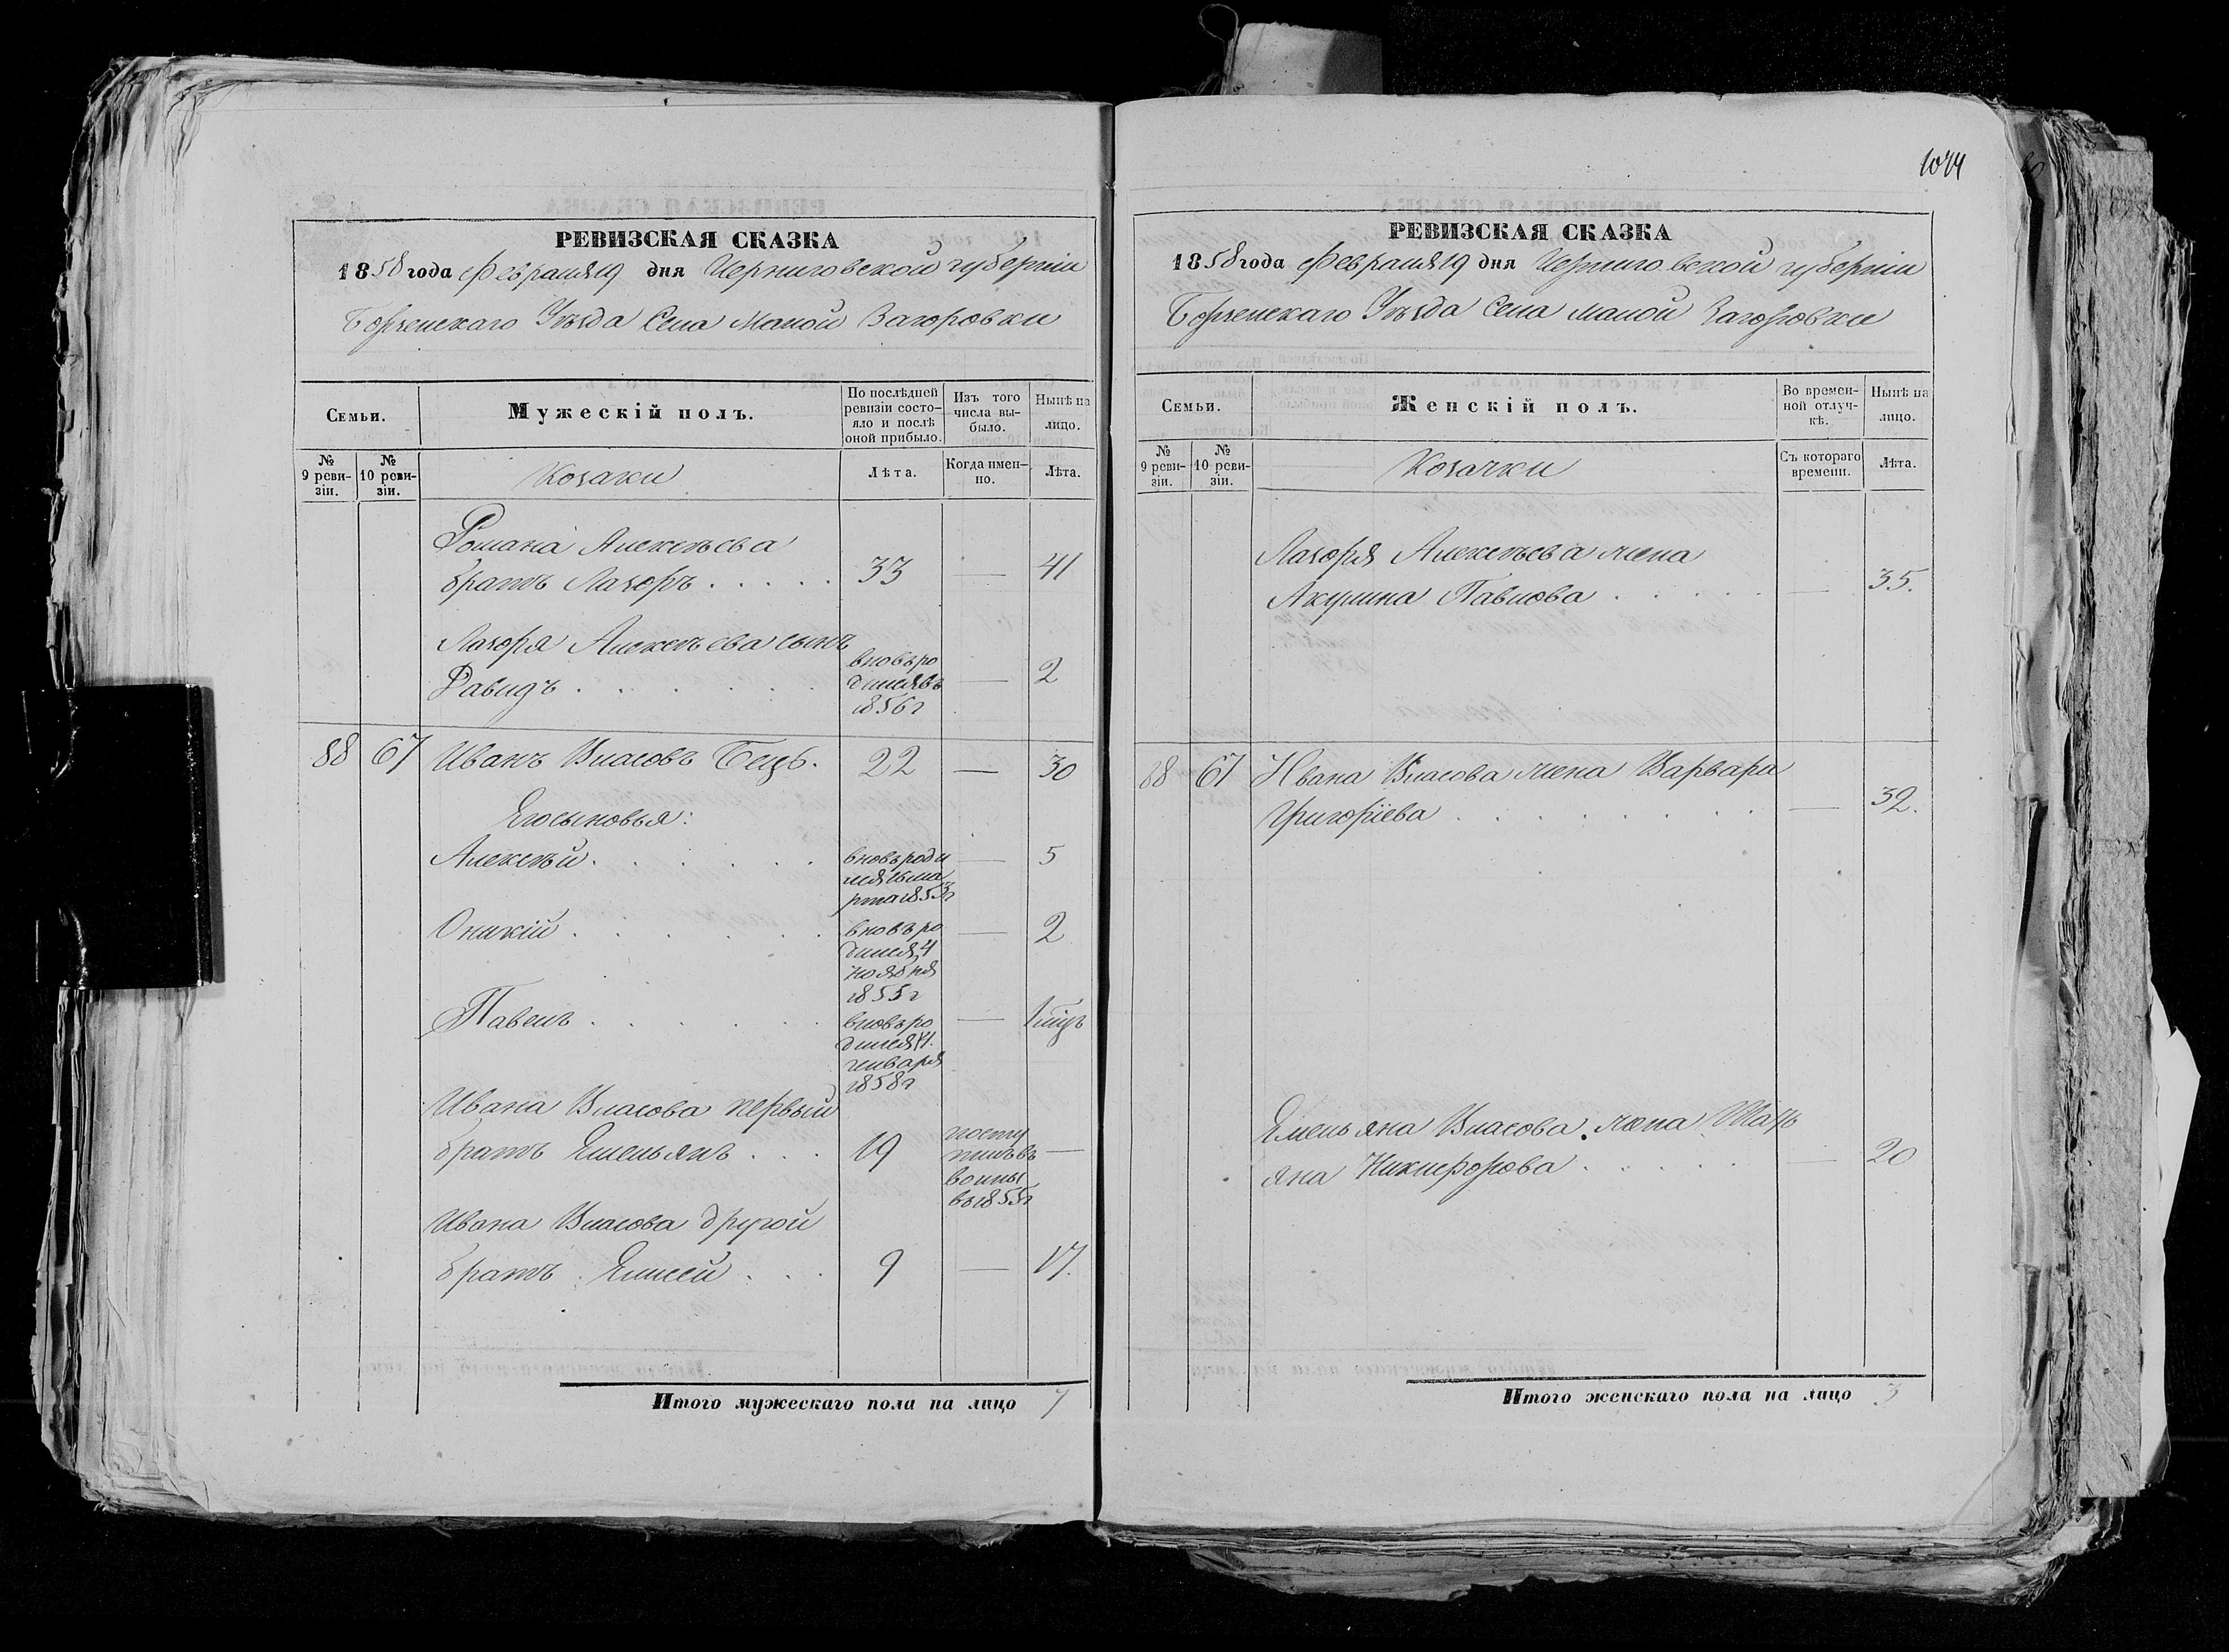 1074
РЕВИЗСКАЯ СКАЗКА
1858 года Февраля 19 дня Черниговской губерніи
Борзенскаго Уѣзда Села Малой Загоровки
Семьи.
Мужескій полъ.
По послѣдней ревизіи состо-
яло и послѣ оной прибыло.
Изъ того числа вы-
было.
Нынѣ на лицо.
№ 9 реви-
зіи.
№ 10 реви-
зіи.
Козаки
Лѣта.
Когда имен-
но.
Лѣта.
Романа Алексѣева
братъ Лазоръ . . . . . 33 — 41
Лазоря Алексѣева сынъ
Давидъ . . . . . . вновь ро — 2
дился въ
1856 г
88 67 Иванъ Власовъ Бецъ. 22 — 30
Его сыновья:
Алексѣй . . . . . . вновь роди — 5
лся 8 ма
рта 1853 г
Оникій . . . . . . вновь ро — 2
дился 4
ноября
1855 г
Павелъ . . . . . . вновь ро — 1 мцъ
дился 14.
генваря
1858 г
Ивана Власова первый
братъ Емельянъ . . . 19 посту —
пилъ въ
воины
въ 1855 г
Ивана Власова другой
братъ Елисей . . . 9 — 17.
Итого мужескаго пола на лицо 7
РЕВИЗСКАЯ СКАЗКА
1858 года Февраля 19 дня Черниговской губерніи
Борзенскаго Уѣзда Села Малой Загоровки
Семьи.
Женскій полъ.
Во времен-
ной отлуч-
кѣ.
Нынѣ на лицо.
№ 9 реви-
зіи.
№ 10 реви-
зіи.
Козачки
Съ котораго времени.
Лѣта.
Лазоря Алексѣева жена
Акулина Павлова . . . . . — 35.
88 67 Ивана Власова жена Варвара
Григоріева . . . . . . . . — 32.
Емельяна Власова жена Мар
яна Никифорова . . . . . — 20
Итого женскаго пола на лицо 3